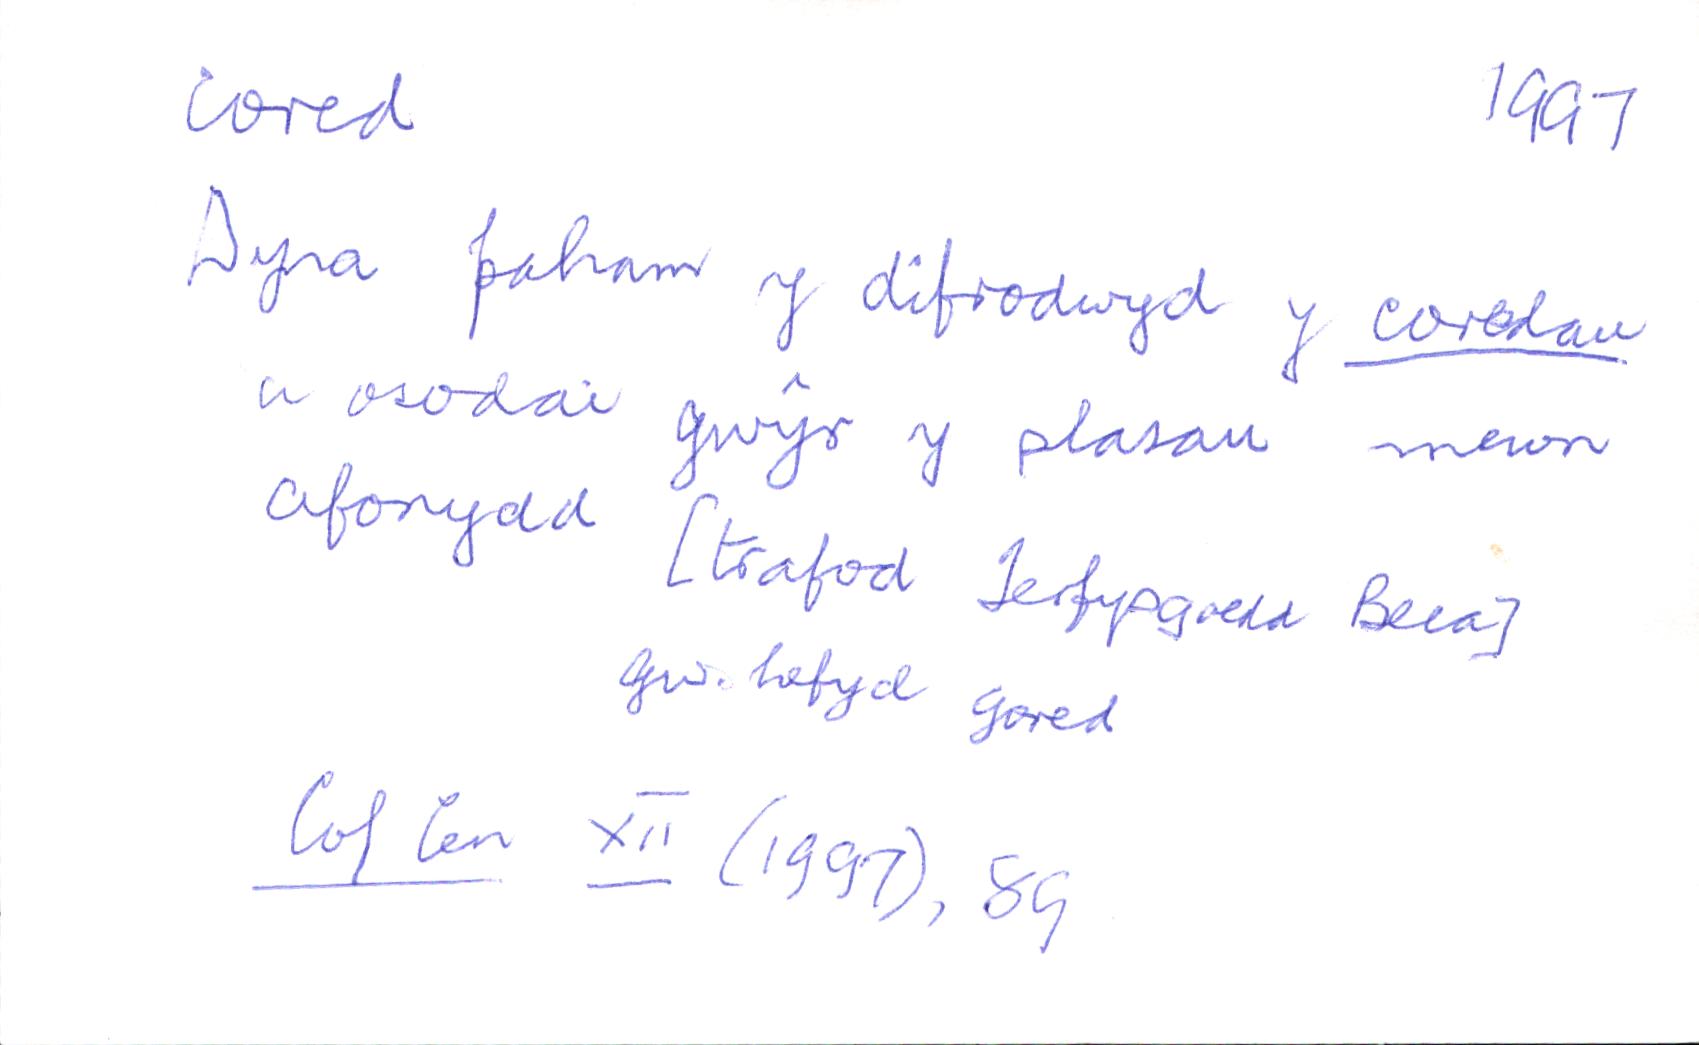 cored 1997
Dyna paham y difrodwyd y coredau
a osodai gwŷr y plasau mewn
afonydd [trafod Terfysgoedd Beca]
gw. hefyd gored
Cof Cen XII (1997), 89